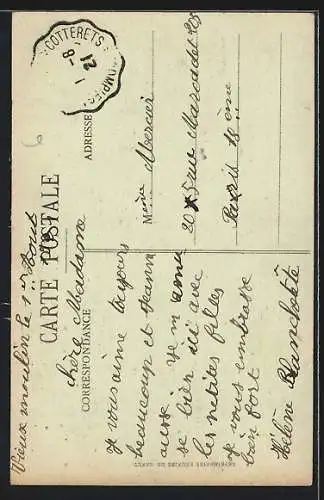 Vieux moulin le 1er Aout
CARTE POSTALE
CORRESPONDANCE
ADRESSE
COTTERETS
12 - 8
chère Madame
Je vous aime toujours
beaucoup et Jeanne
aussi je m'amuse
se bien ici avec
les petites filles
je vous embrasse
bien fort
Hélène Blanchet
Mme Mercier
205 rue Marcadet 205
Paris 18 ème